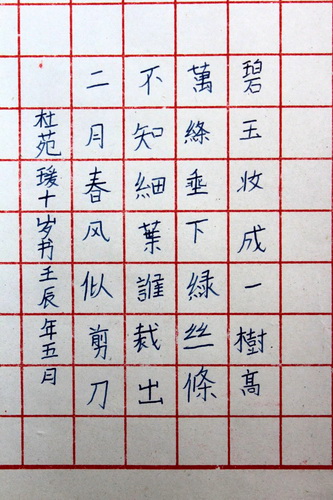 碧玉妆成一樹髙
萬絛垂下緑丝條
不知細葉誰裁出
二月春风似剪刀
杜苑瑗十岁书壬辰年五月